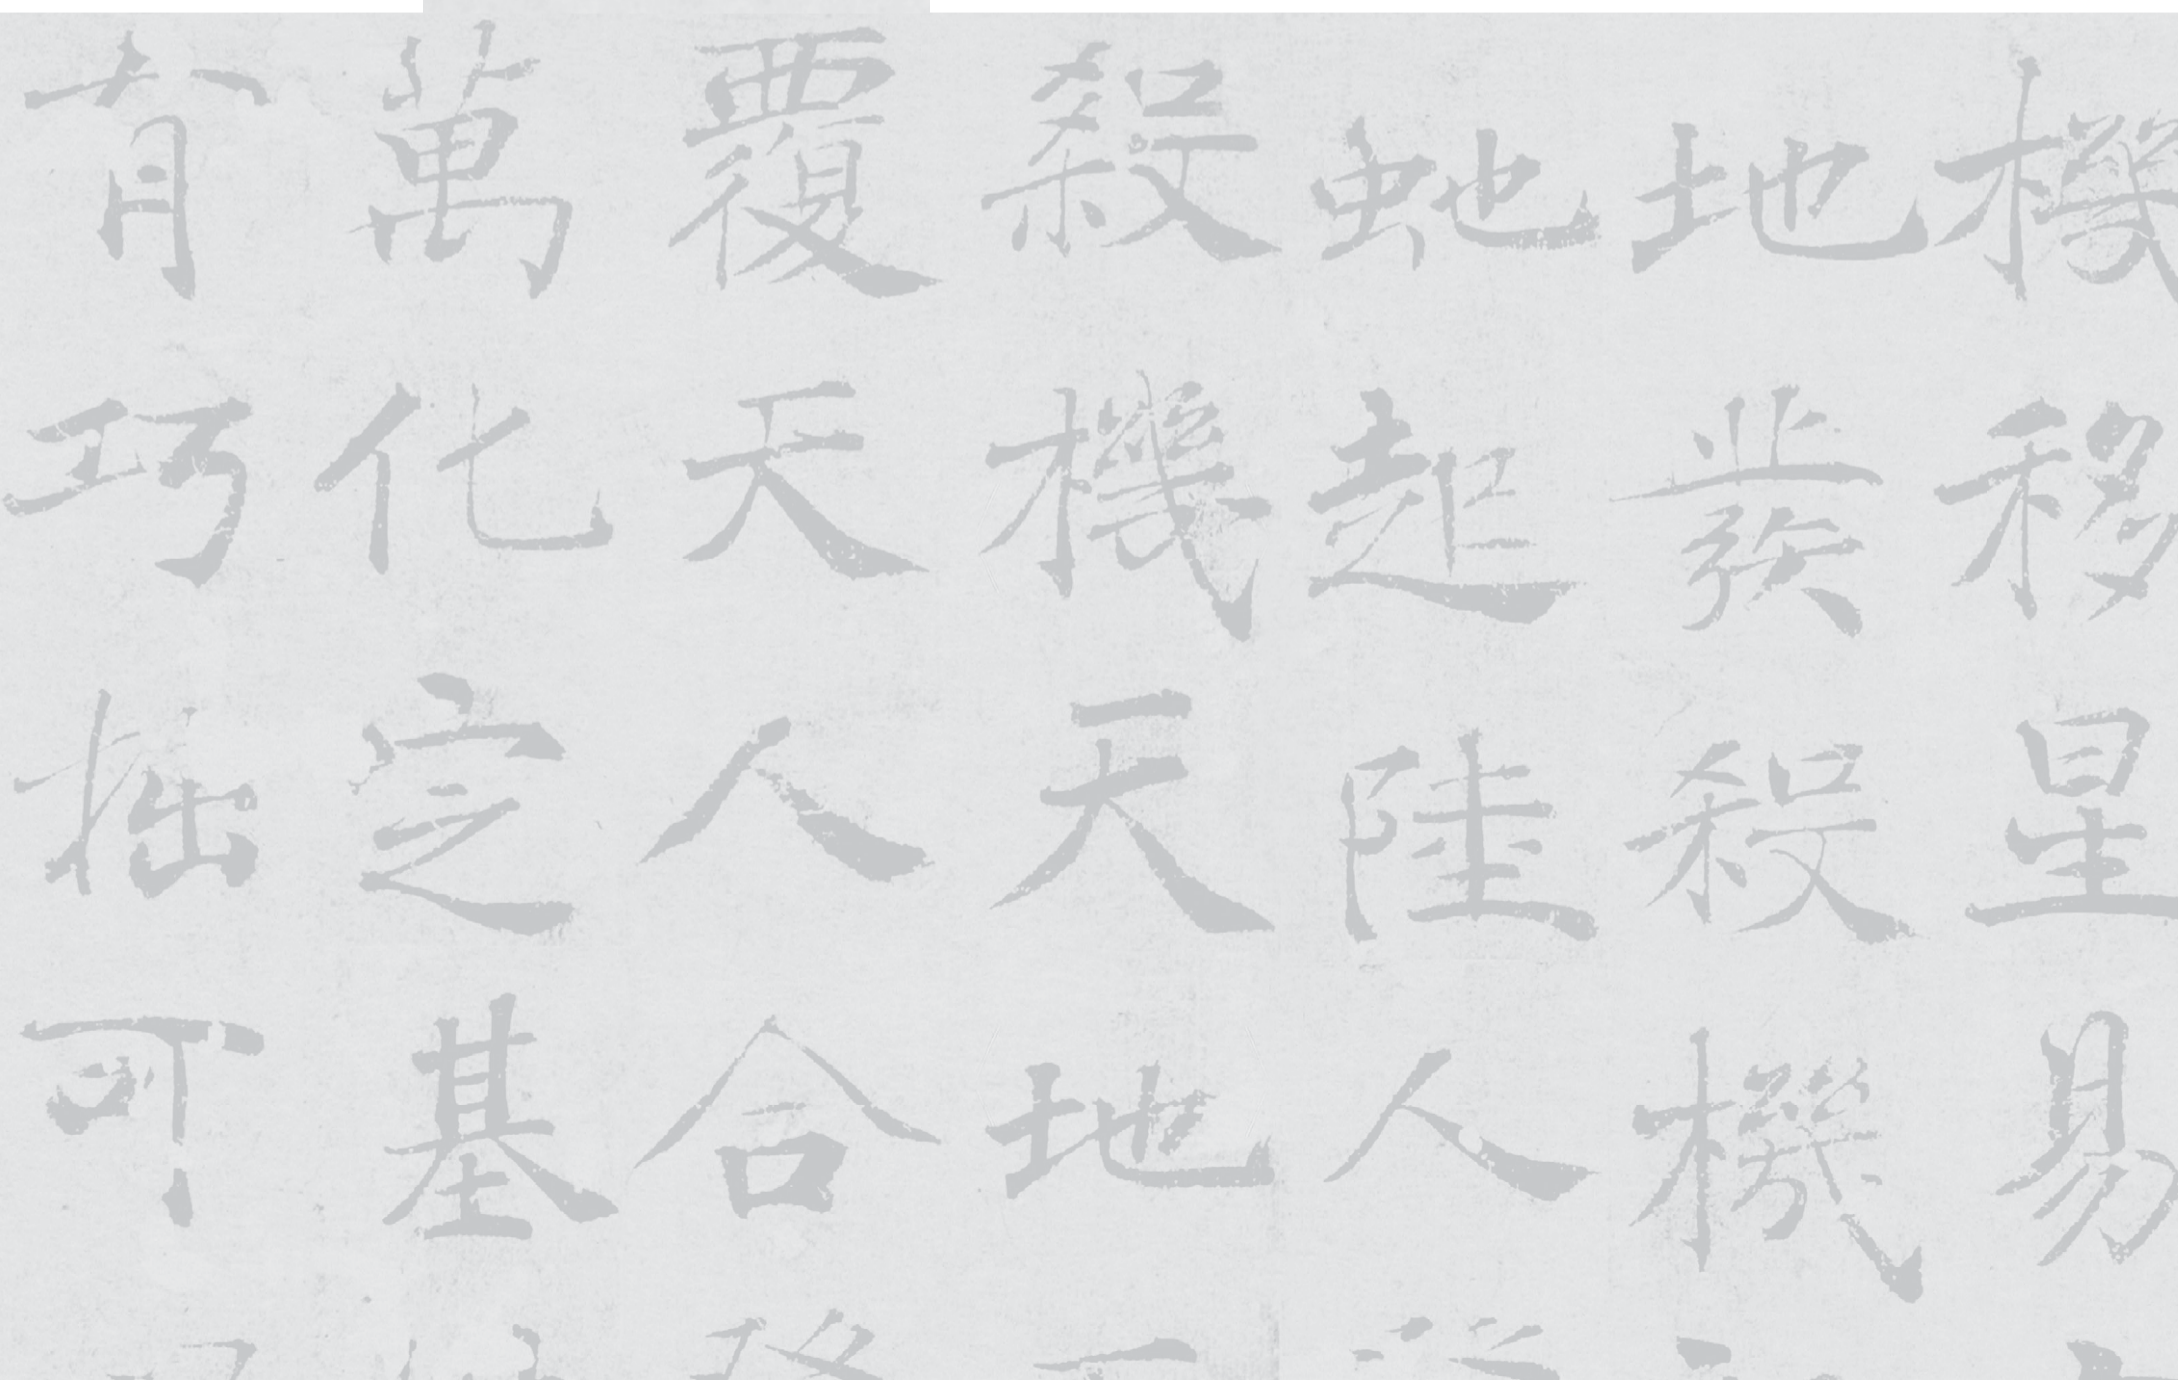 機移星易
地發殺機
虵起陸人
殺機天地
覆天人合
萬化定基
有巧拙可